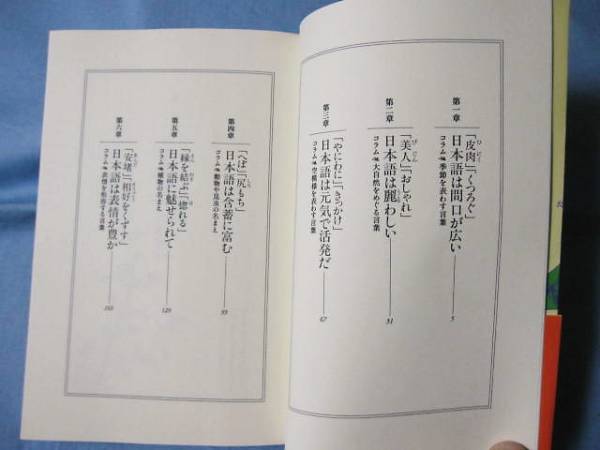 第一章
「皮肉」「くつろぐ」
日本語は間口が広い
5
コラム 季節を表わす言葉
第二章
「美人」「おしゃれ」
日本語は麗わしい
31
コラム 大自然をめぐる言葉
第三章
「やにわに」「きっかけ」
日本語は元気で活発だ
67
コラム 空模様を表わす言葉
第四章
「へぼ」「尻もち」
日本語は含蓄に富む
コラム 動物や昆虫の名まえ
第五章
「縁を結ぶ」「惚れる」
日本語に魅せられて
129
コラム 植物の名まえ
第六章
「安堵」「相好をくずす」
日本語は表情が豊か
コラム 表情を形容する言葉